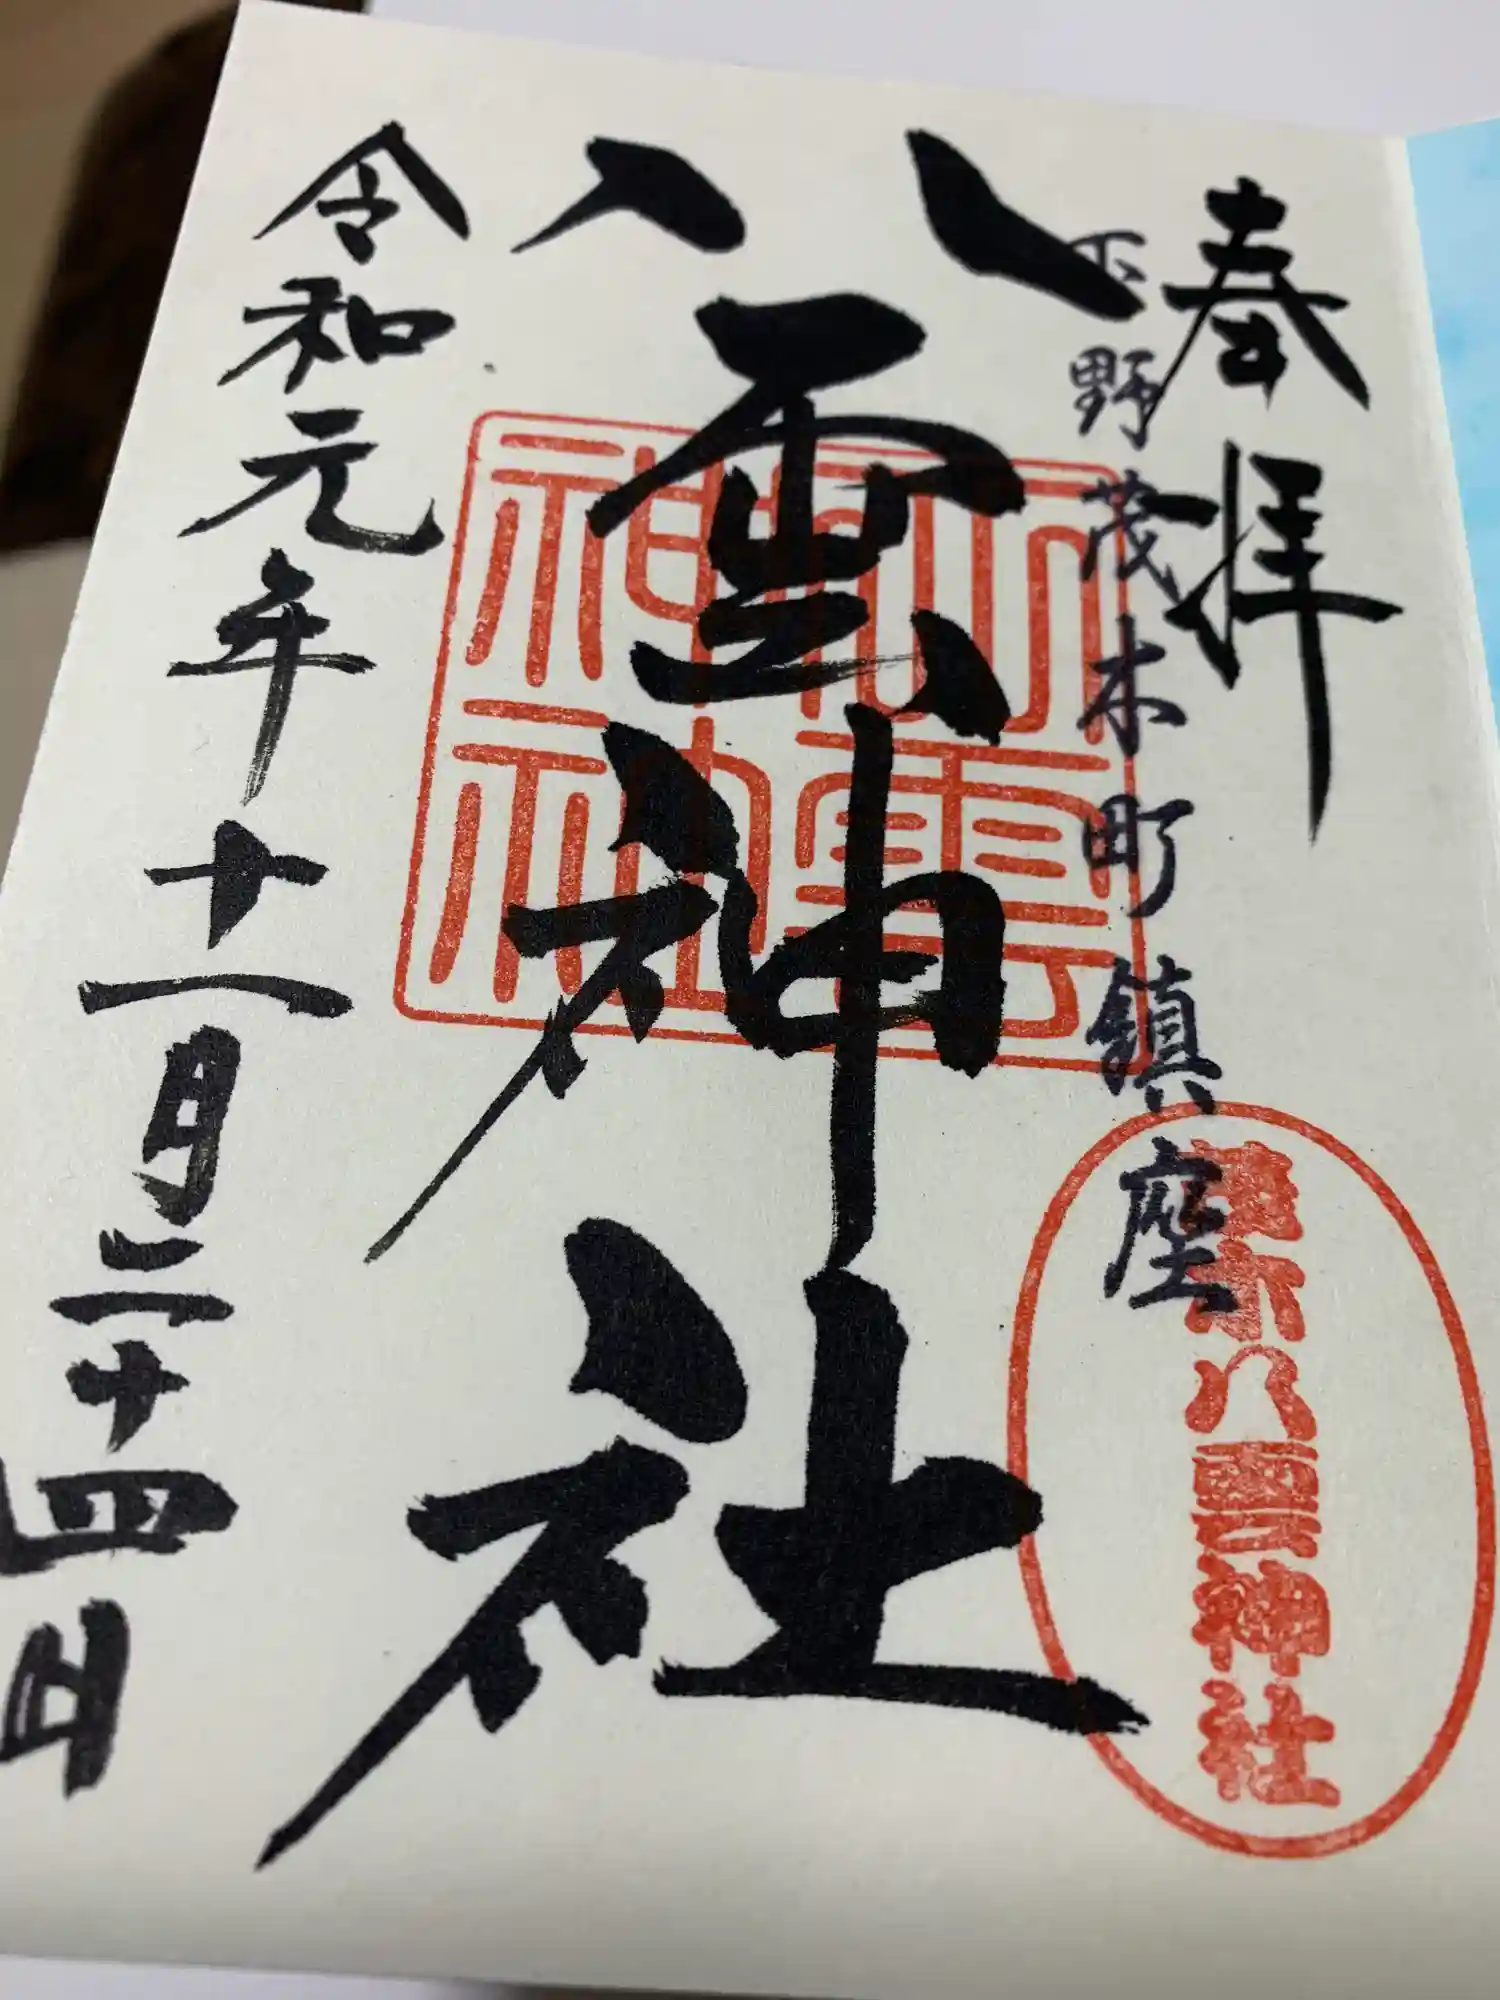 奉拝
下野茂木町鎮座
八雲神社
令和元年十一月二十四日
八雲神社
茂木八雲神社